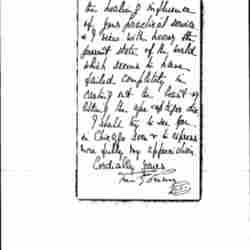 the healing influence
of your practical service
& I view with horror the
present state of the world
which seems to have
failed completely in
casting out the beast &
letting the ape & tiger die
I shall try to see you
in Chicago soon & to express
more fully my appreciation
Cordially yours